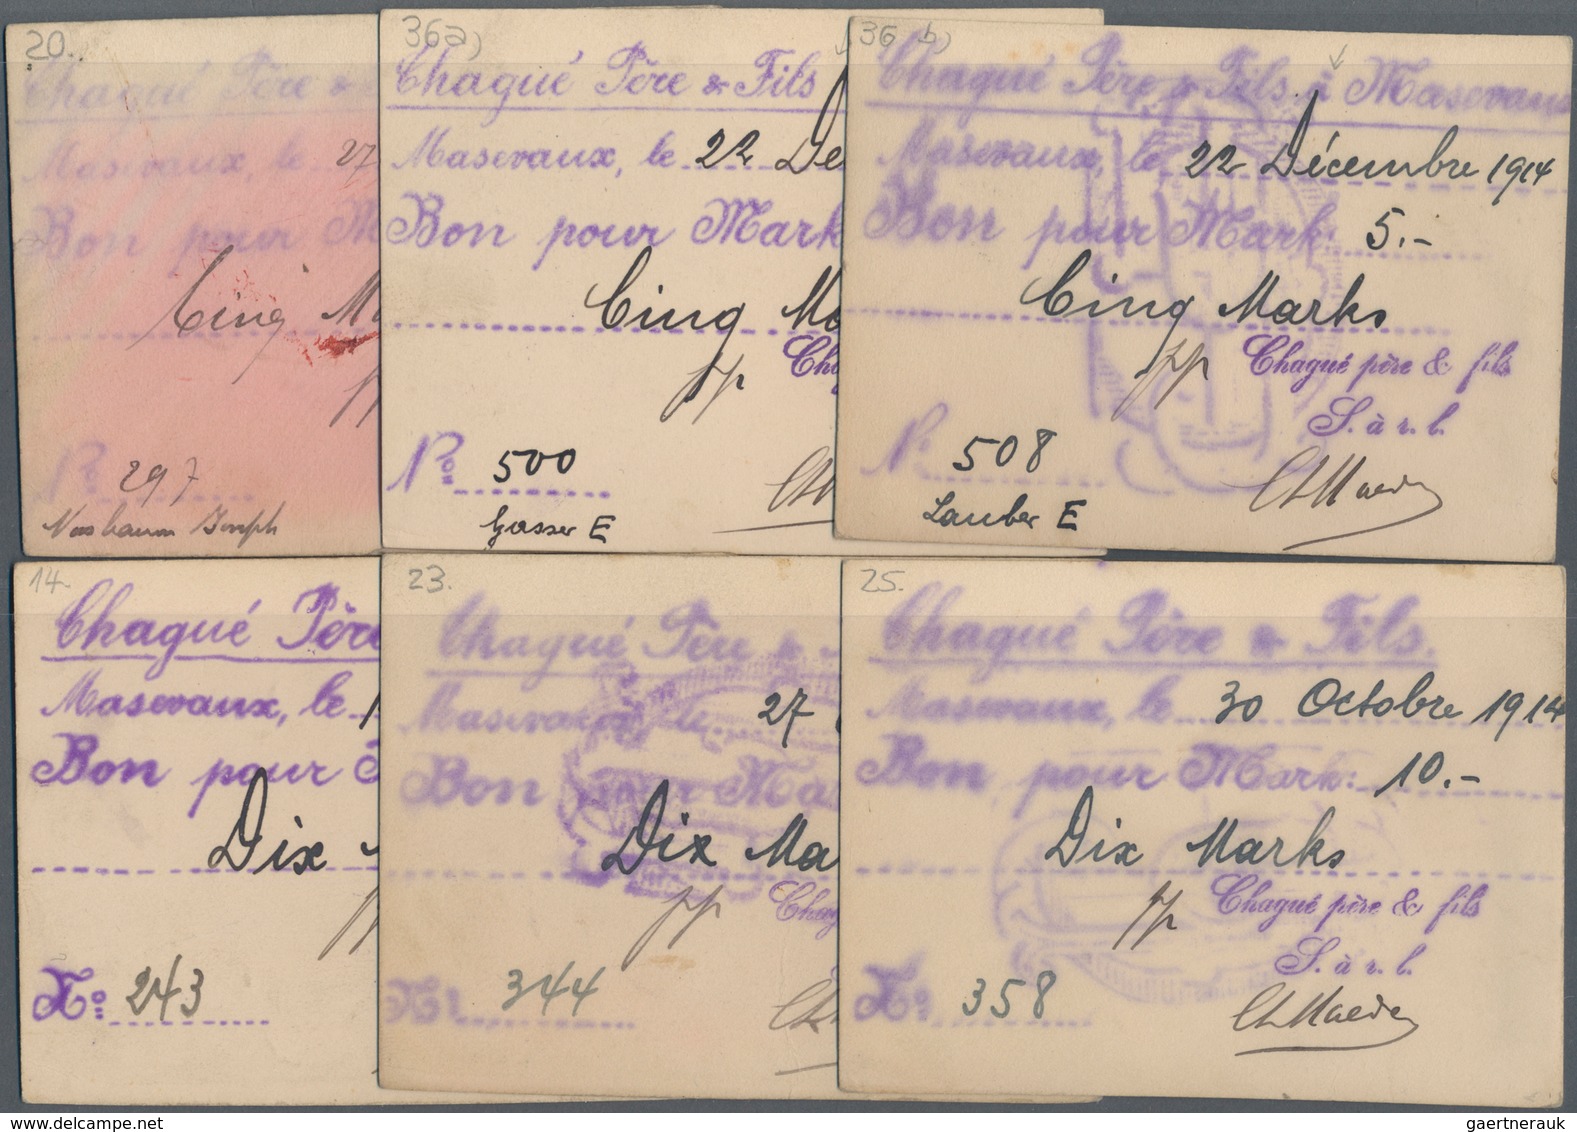 20.
Chagué Père &
Masevaux, le 27
Bon pour M
Cinq M
pp
No 297
Joseph
36a)
Chagué Père & Fils
Masevaux, le 22 Dé
Bon pour Mark
Cinq Ma
pp Cha
No 500
Gasser E
36 b)
Chagué Père & Fils à Masevaux
Masevaux, le 22 Décembre 1914
Bon pour Mark: 5.-
Cinq Marks
pp Chagué père & fils
S. à r. l.
No 508
Lauber E
14.
Chagué Père
Masevaux, le 1
Bon pour M
Dix M
No: 243
23.
Chagué Père &
Masevaux, le 27
Bon pour Ma
Dix Ma
pp Chag
No: 344
25.
Chagué Père & Fils.
Masevaux, le 30 Octobre 1914
Bon pour Mark: 10.-
Dix Marks
pp Chagué père & fils
S. à r. l.
No: 358
gaertnerauk